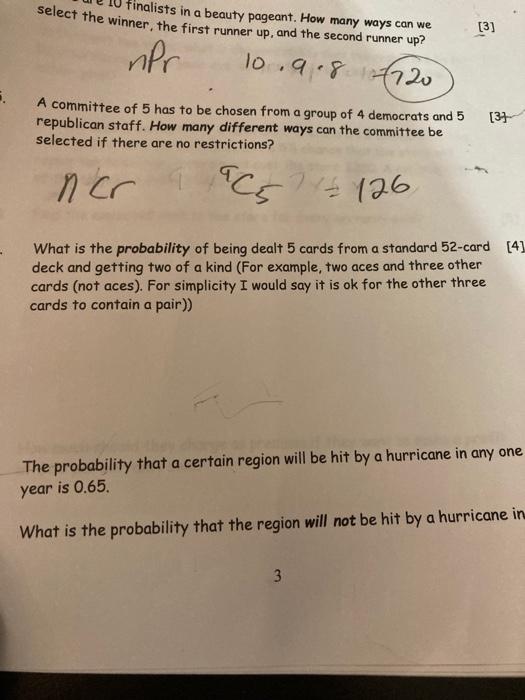 10 finalists in a beauty pageant. How many ways can we
select the winner, the first runner up, and the second runner up? [3]
nPr 10.9.8 = 720
5.
A committee of 5 has to be chosen from a group of 4 democrats and 5 [3]
republican staff. How many different ways can the committee be
selected if there are no restrictions?
nCr 9C5 = 126
What is the probability of being dealt 5 cards from a standard 52-card [4]
deck and getting two of a kind (For example, two aces and three other
cards (not aces). For simplicity I would say it is ok for the other three
cards to contain a pair))
The probability that a certain region will be hit by a hurricane in any one
year is 0.65.
What is the probability that the region will not be hit by a hurricane in
3